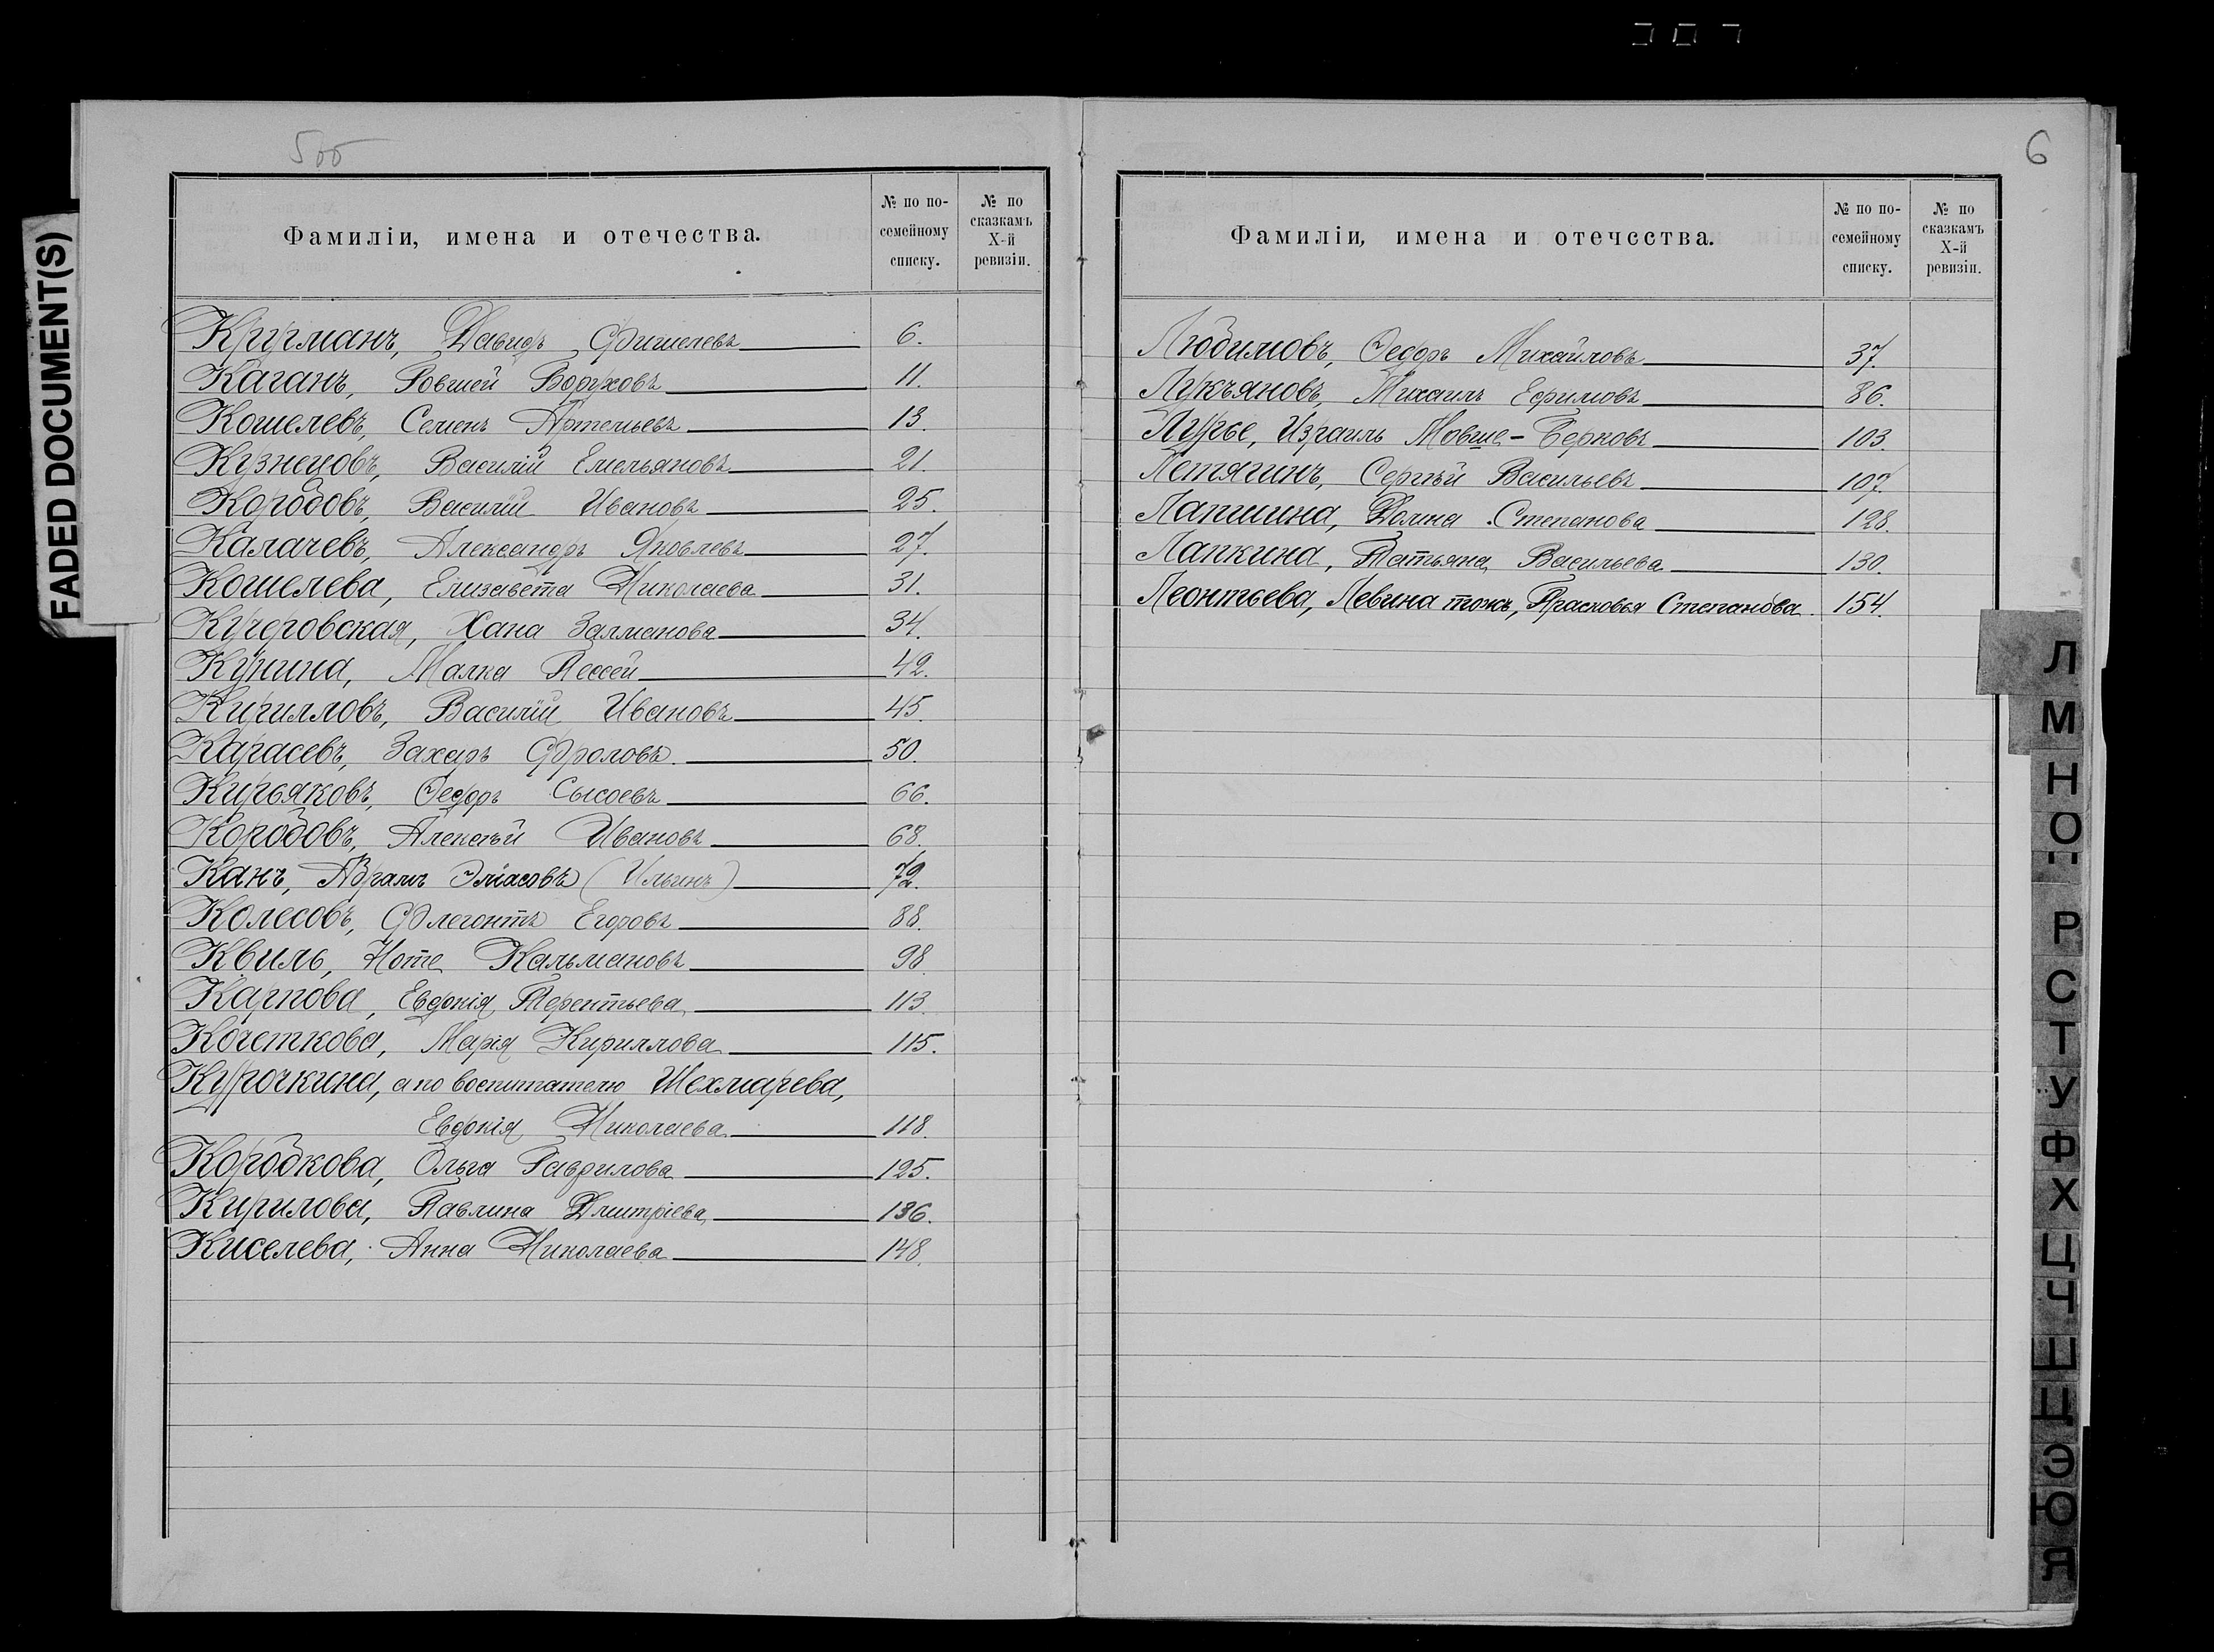 FADED DOCUMENT(S)
6
Фамиліи, имена и отечества.
№ по по-
семейному
списку.
№ по
сказкамъ
X-й
ревизіи.
Кругманъ, Давидъ Фишелевъ 6.
Каганъ, Ровшей Боруховъ 11.
Кошелевъ, Семенъ Артемьевъ 13.
Кузнецовъ, Василій Емельяновъ 21.
Коробовъ, Василій Ивановъ 25.
Калачевъ, Александръ Яковлевъ 27.
Кошелева, Елизавета Николаева 31.
Кучеровская, Хана Залманова 34.
Кунина, Малка Пессей 42.
Кирилловъ, Василій Ивановъ 45.
Карасевъ, Захаръ Фроловъ. 50.
Кирьяковъ, Ѳедоръ Сысоевъ 66.
Коробовъ, Алексѣй Ивановъ 68.
Канъ, Абрамъ Эліасовъ (Ильинъ) 72.
Колесовъ, Флегонтъ Егоровъ 88.
Квиль, Ноте Кальмановъ 98
Карпова, Евдокія Терентьева 113.
Кочеткова, Марія Кириллова 115.
Курочкина, а по воспитателю Шехмарева,
Евдокія Николаева 118.
Коробкова, Ольга Гаврилова 125.
Кирилова, Павлина Дмитріева 136.
Киселева, Анна Николаева 148.
Фамиліи, имена и отечества.
№ по по-
семейному
списку.
№ по
сказкамъ
X-й
ревизіи.
Любимовъ, Ѳедоръ Михайловъ 37.
Лукъяновъ, Михаилъ Ефимовъ 86.
Лурье, Израиль Мовше-Берковъ 103.
Летягинъ, Сергѣй Васильевъ 107.
Лапшина, Домна Степанова 128.
Лапкина, Татьяна Васильева 130.
Леонтьева, Левина тожъ, Прасковья Степанова. 154.
Л
М
Н
О
П
Р
С
Т
У
Ф
Х
Ц
Ч
Ш
Щ
Э
Ю
Я